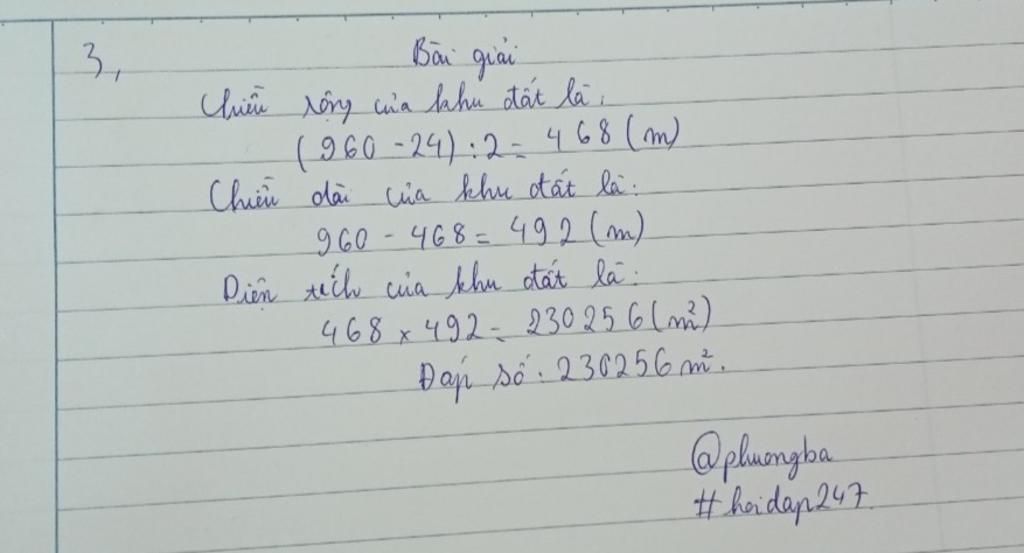 3,
Bài giải
Chiều rộng của khu đất là:
(960 - 24) : 2 = 468 (m)
Chiều dài của khu đất là:
960 - 468 = 492 (m)
Diện tích của khu đất là:
468 x 492 = 230256 (m²)
Đáp số: 230256 m².
@phuongba
#hoidap247